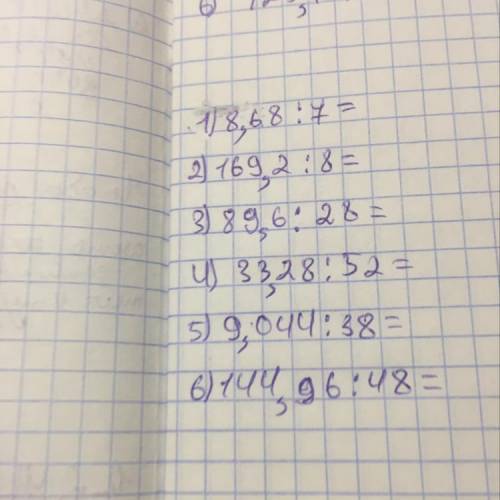 1) 8,68 : 7 =
2) 169,2 : 8 =
3) 89,6 : 28 =
4) 33,28 : 52 =
5) 9,044 : 38 =
6) 144,96 : 48 =